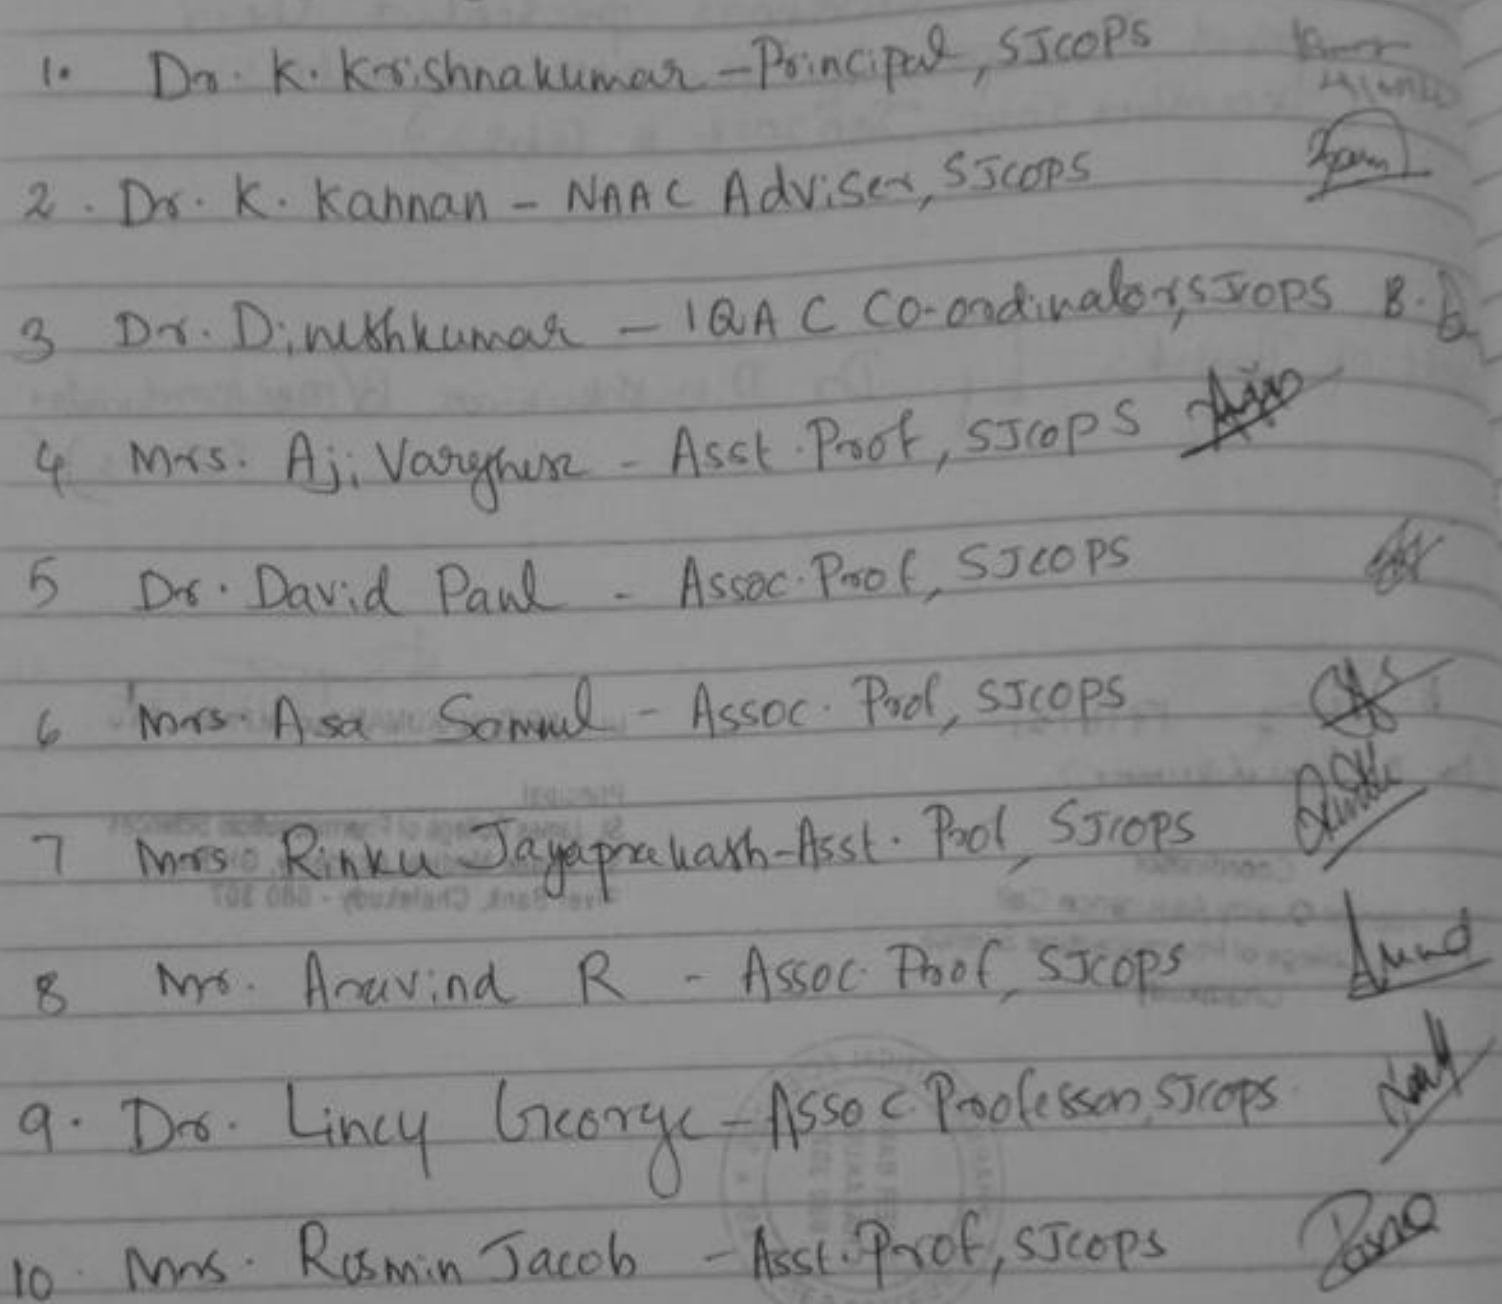 1. Dr. K. Krishnakumar - Principal, SJCOPS
2. Dr. K. Kannan - NAAC Adviser, SJCOPS
3 Dr. Dineshkumar - IQAC Co-ordinator, SJCOPS B.
4 Mrs. Aji Varghese - Asst. Prof, SJCOPS
5 Dr. David Paul - Assoc. Prof, SJCOPS
6 Mrs Asa Samuel - Assoc. Prof, SJCOPS
7 Mrs Rinku Jayaprakash - Asst. Prof, SJCOPS
8 Mr. Aravind R - Assoc Prof, SJCOPS
9. Dr. Lincy George - Assoc Professor, SJCOPS
10. Mrs. Rosmin Jacob - Asst. Prof, SJCOPS